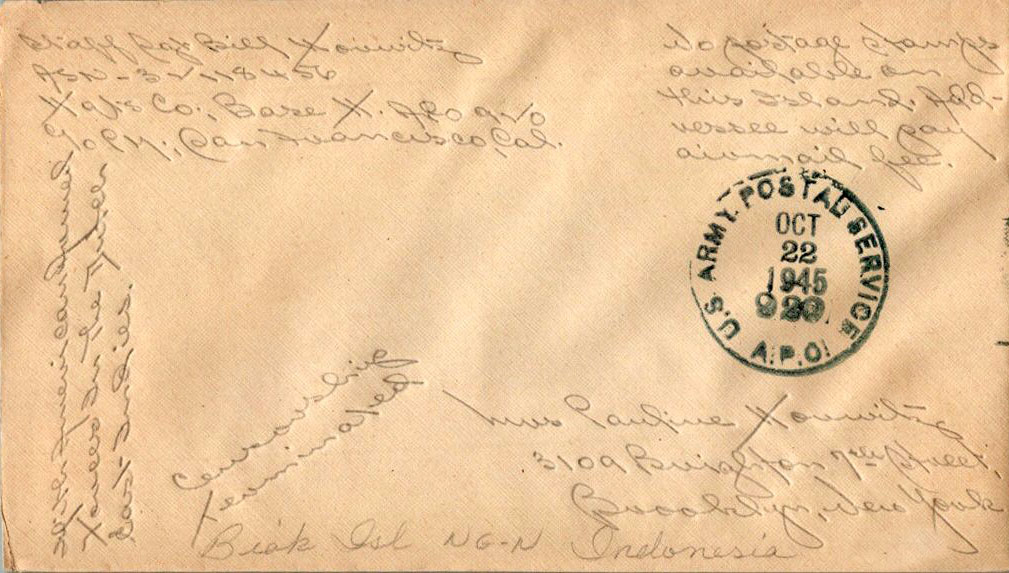 Staff Sgt Bill Horwitz
ASN-32118456
Hq's Co., Base H. APO 920
c/o P.M., San Francisco, Cal.
No postage stamps
available on
this island. Add-
ressee will pay
airmail fee.
U.S. ARMY POSTAL SERVICE
OCT
22
1945
920
A.P.O.
With American Armed
Forces In The
East-Indies.
Censorship
terminated
Mrs Pauline Horwitz
3109 Brighton 7th Street,
Brooklyn, New York
Biak Isl NG-N Indonesia